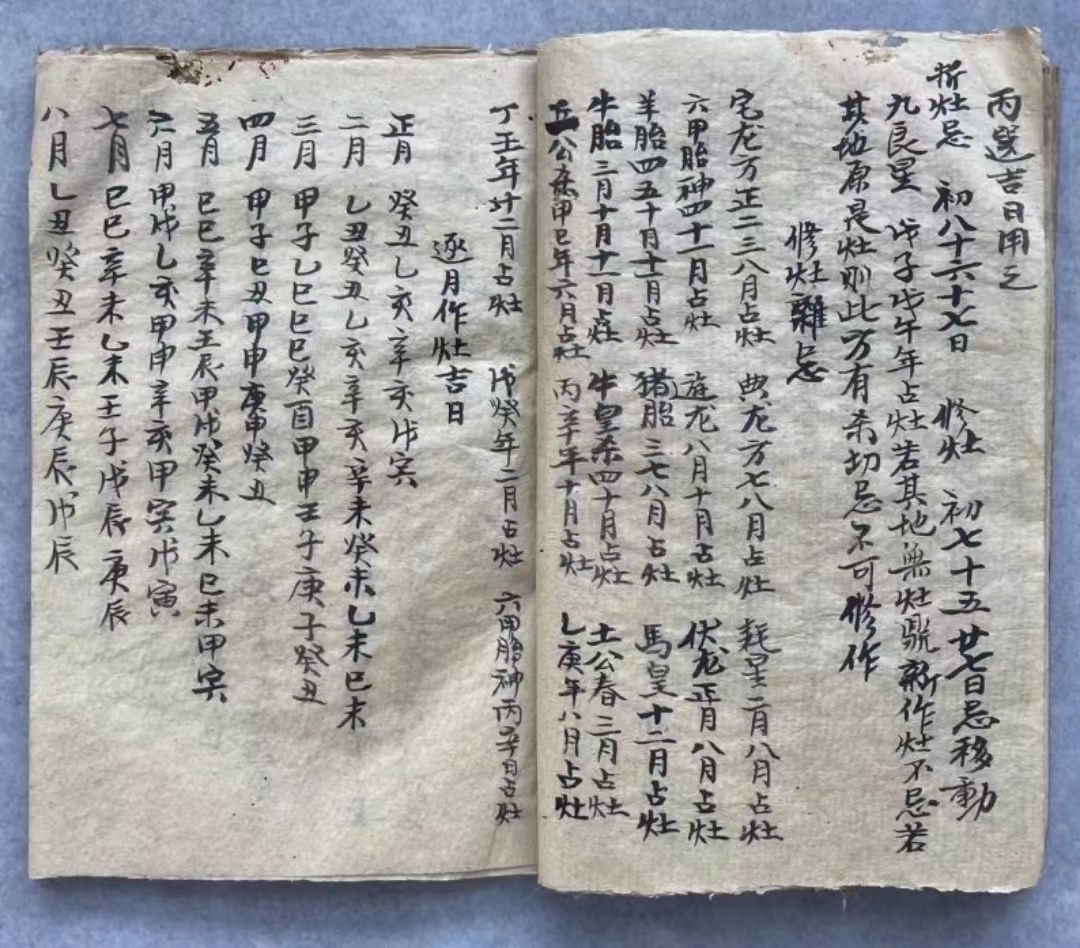 丙選吉日用之
拆灶忌 初八十六十七日 修灶 初七十五廿七日忌移動
九良星 戊子戊午年占灶若其地無灶鼎新作灶不忌若
其地原是灶則此方有杀切忌不可修作
修灶雜忌
宅龙方正二三八月占灶 典龙方七八月占灶 耗星二月八月占灶
六甲胎神四十一月占灶 遊龙八月十月占灶 伏龙正月八月占灶
羊胎四五十月十一月占灶 猪胎三七八月占灶 馬皇十二月占灶
牛胎三月十月十一月占灶 牛皇杀四十月占灶 土公春三月占灶
土公杀甲己年六月占灶 丙辛年十月占灶 乙庚年八月占灶
丁壬年廿二月占灶 戊癸年二月占灶 六甲胎神丙辛日占灶
逐月作灶吉日
正月 癸丑乙亥辛亥戊寅
二月 乙丑癸丑乙亥辛亥辛未癸未乙未巳未
三月 甲子乙巳巳巳癸酉甲申壬子庚子癸丑
四月 甲子巳丑甲申庚申癸丑
五月 巳巳辛未壬辰甲戌癸未乙未巳未甲寅
六月 甲戌乙亥甲申辛亥甲寅戊寅
七月 巳巳辛未乙未壬子戊辰庚辰
八月 乙丑癸丑壬辰庚辰戊辰